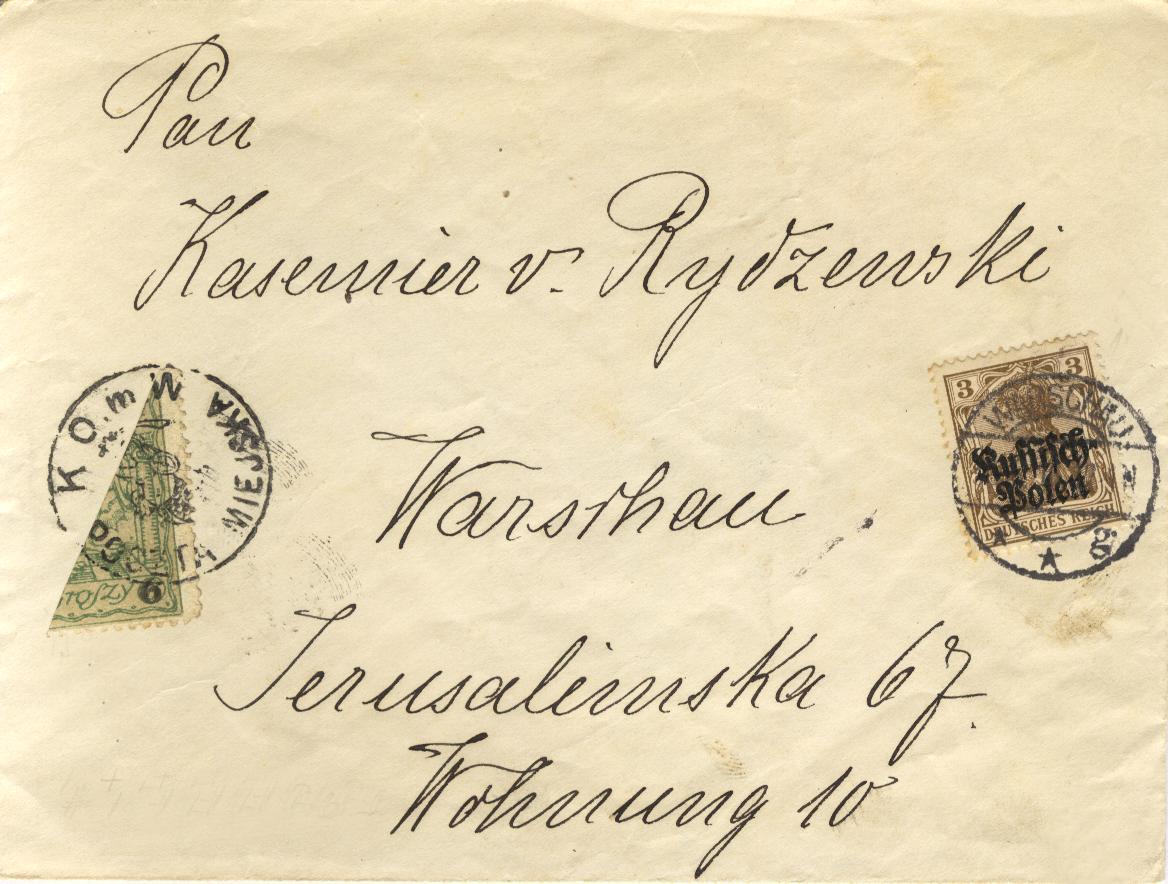 Pan
Kasemier v. Rydzewski
Warschau
Jerusalimska 67.
Wohnung 10
KO.m MIEJSKA
GROSZY 6
3 3
WARSCHAU
Russisch-
Polen
DEUTSCHES REICH